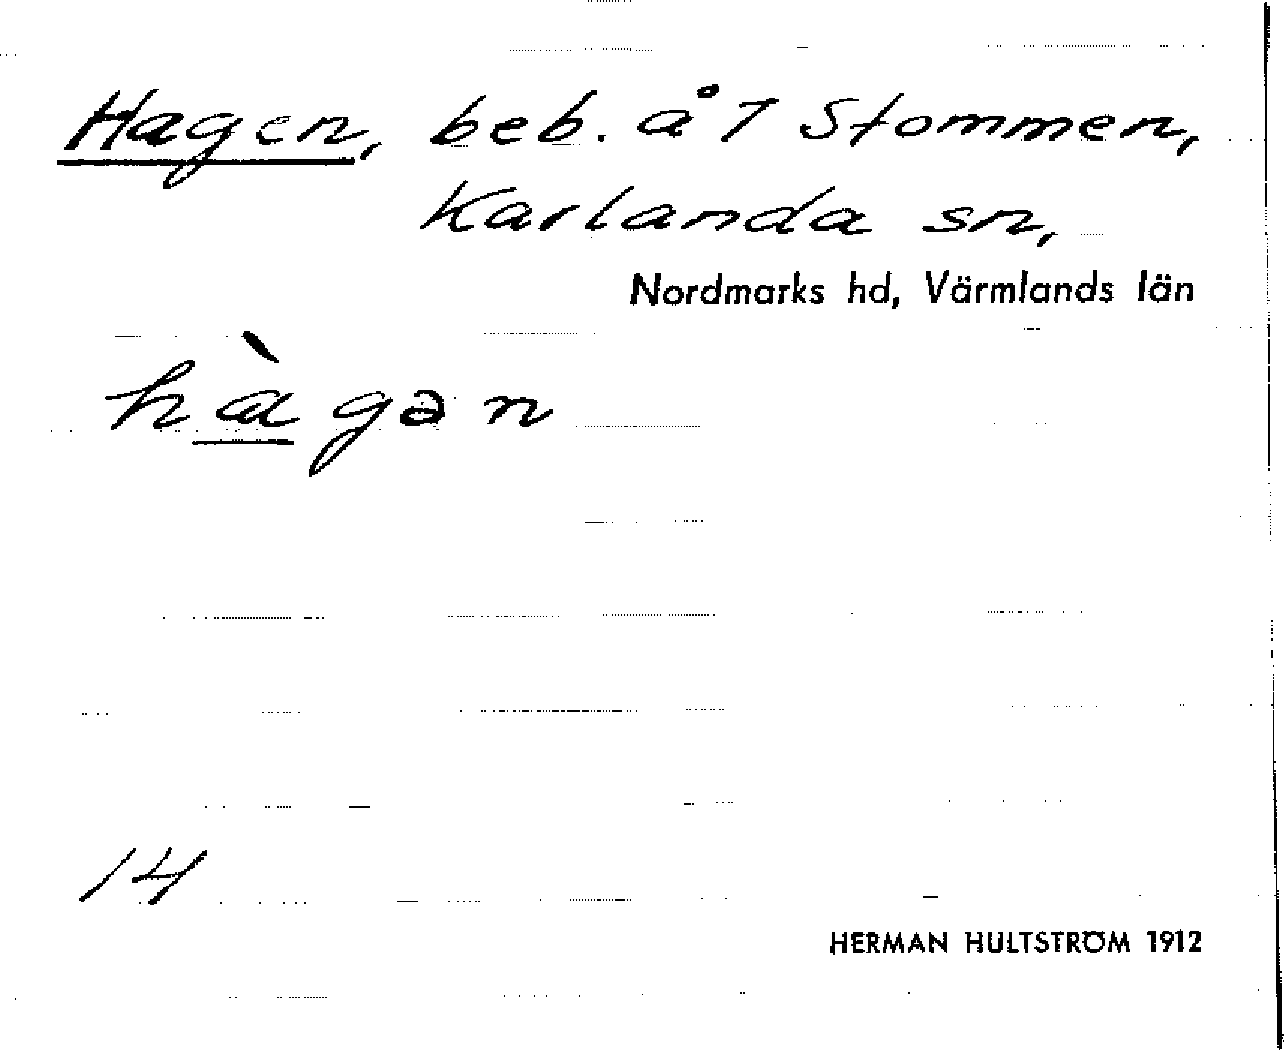 Hagen, beb. å 7 Stommen,
Karlanda sn,
Nordmarks hd, Värmlands län
hàgən
14
HERMAN HULTSTRÖM 1912